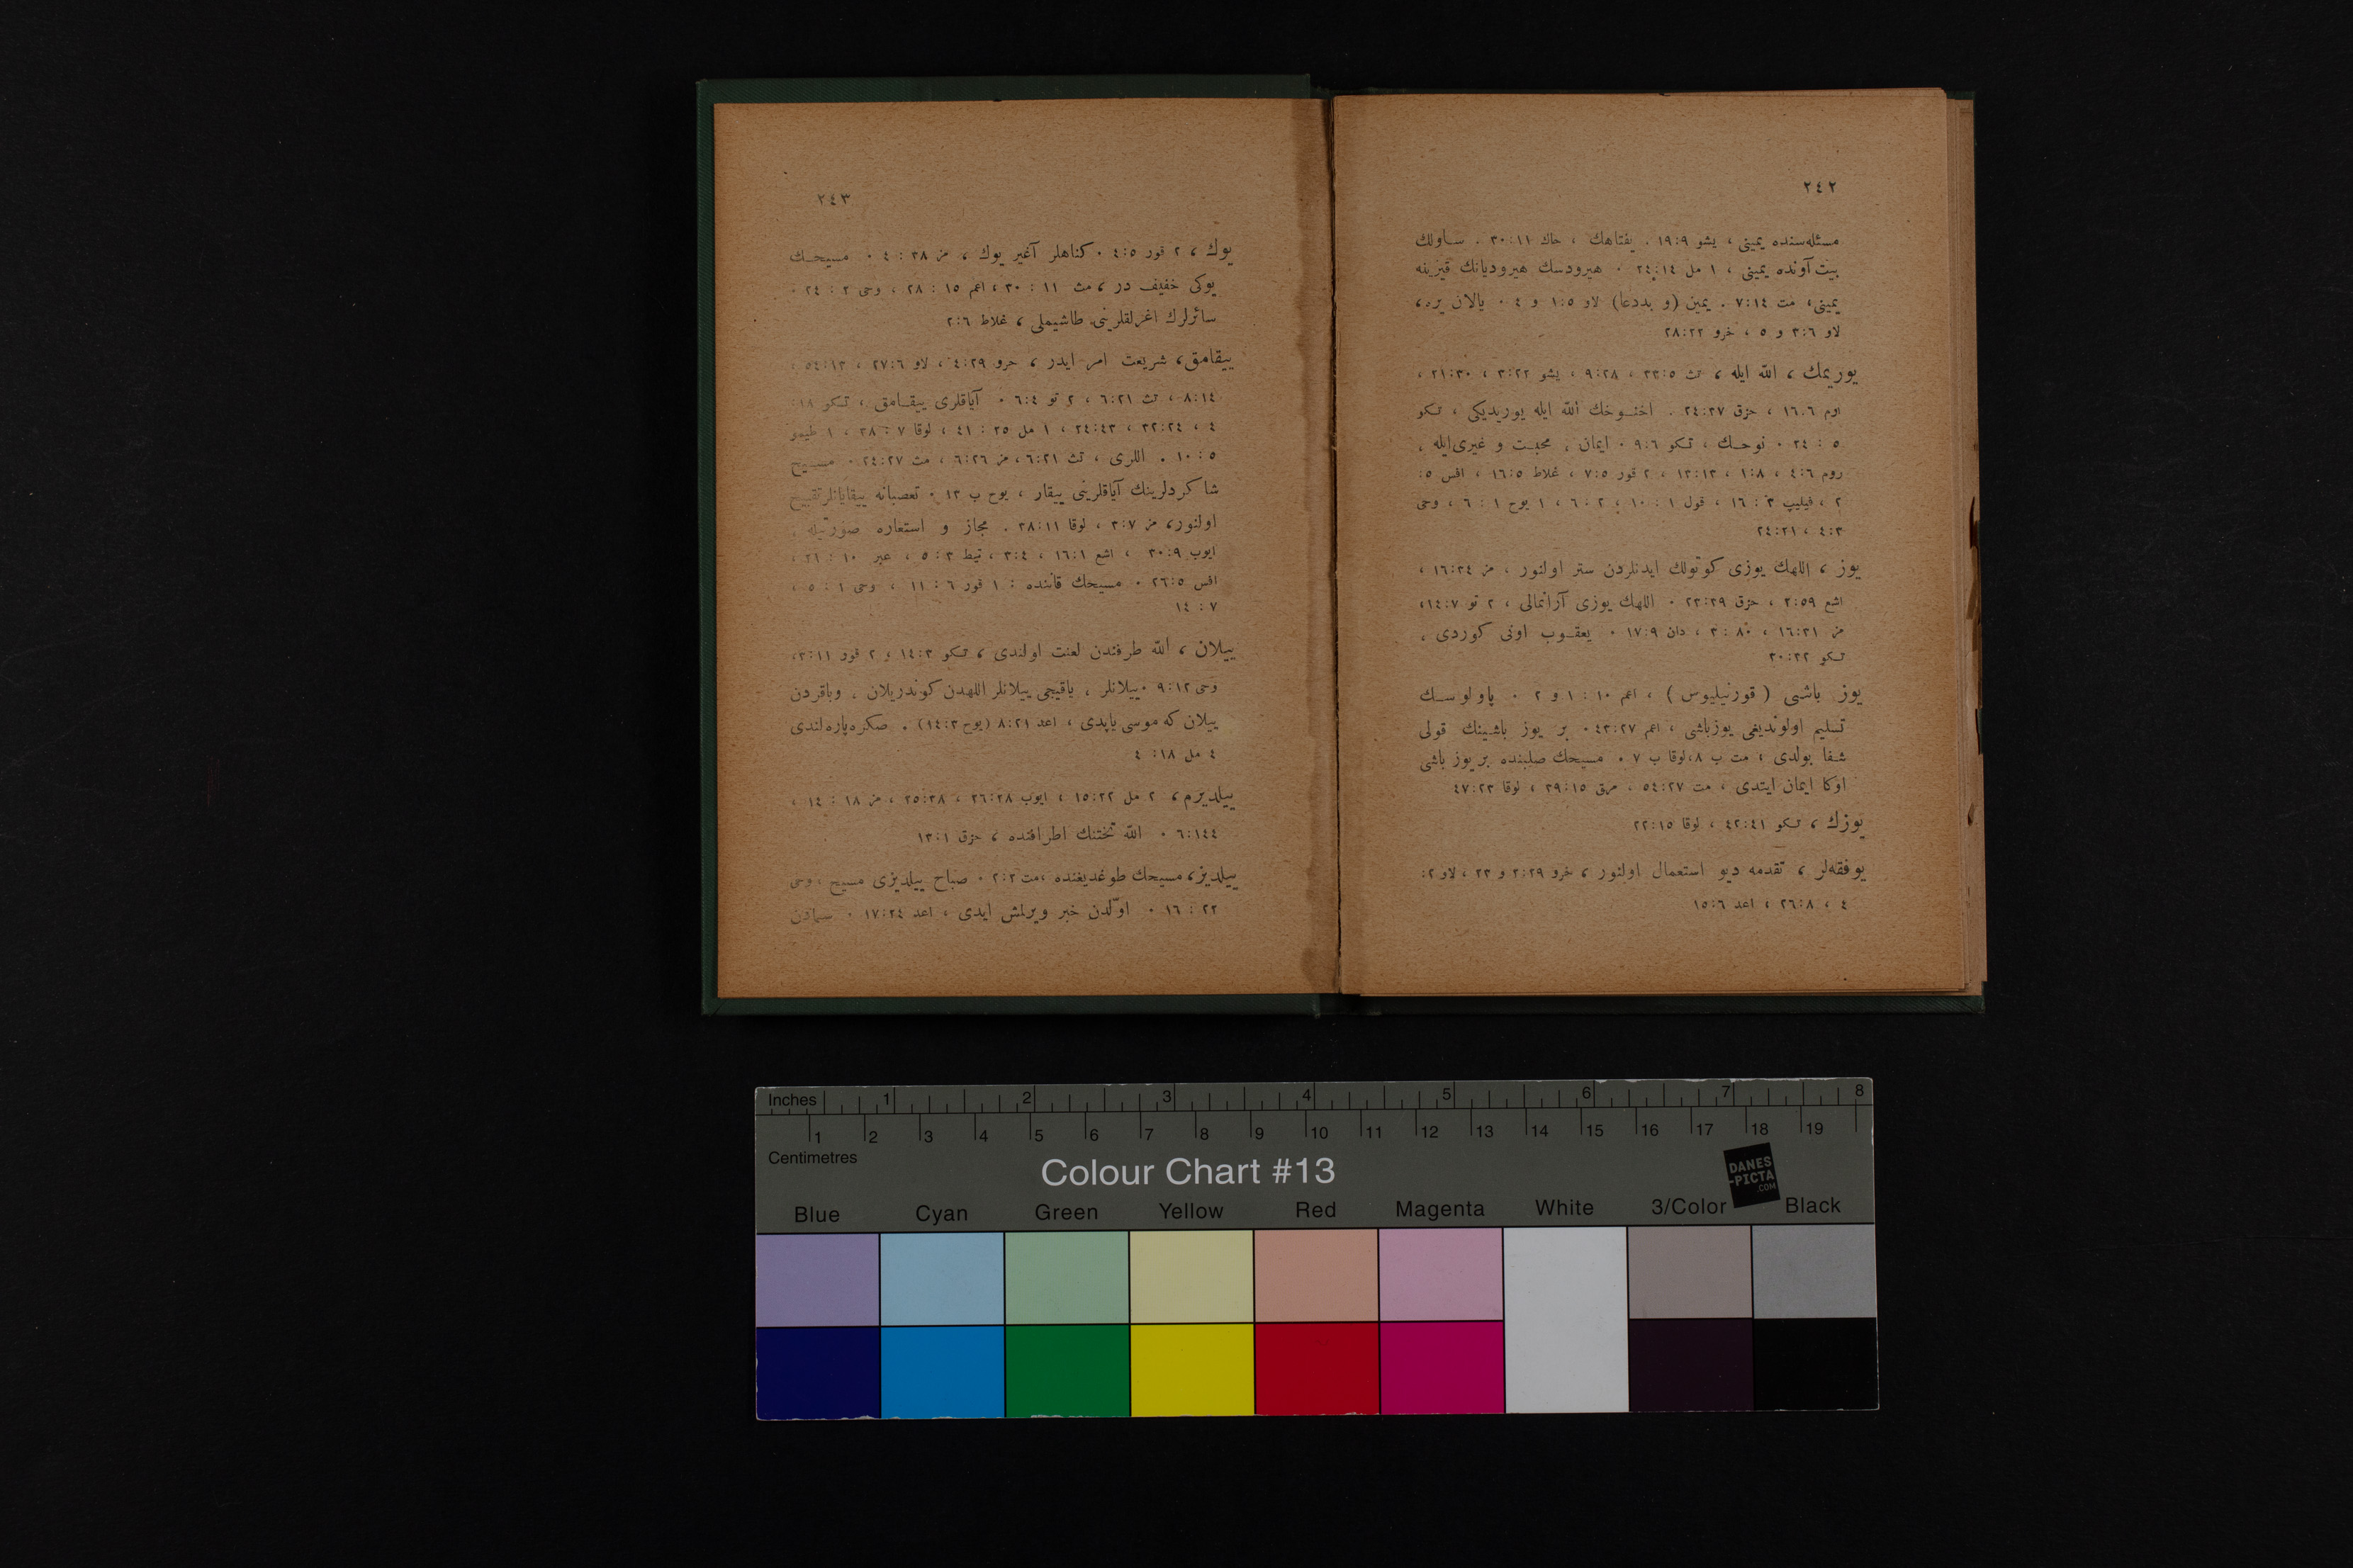 ٢٤٢
مسئله‌سنده يمينى ، يشو ١٩:٩ . يفتاهك ، حاك ٣٠:١١ . ساولك
بيت آونده يمينى ، ١ مل ٢٤:١٤ . هيرودسك هيروديانك قيزينه
يمينى، مت ٧:١٤ . يمين (و بددعا) لاو ١:٥ و ٤ . يالان يره ،
لاو ٣:٦ و ٥ ، خرو ٢٨:٢٢
يوريمك ، الله ايله ، تث ٣٣:٥ ، ٩:٢٨ ، يشو ٣:٢٢ ، ٢١:٣٠ ،
ارم ١٦:٦ ، حزق ٢٤:٣٧ . اخنوخك الله ايله يوريديكى ، تكو
٥ : ٢٤ . نوحك ، تكو ٩:٦ . ايمان ، محبت و غيرى‌ايله ،
روم ٤:٦ ، ١:٨ ، ١٣:١٣ ، ٢ قور ٧:٥ ، غلاط ١٦:٥ ، افس ٥:
٢ ، فيليپ ٣ : ١٦ ، قول ١ : ١٠ ؛ ٢ : ٦ ، ١ يوح ١ : ٦ ، وحى
٤:٣ ، ٢٤:٢١
يوز ، اللهك يوزى كوتولك ايدنلردن ستر اولنور ، مز ١٦:٣٤ ،
اشع ٢:٥٩ ، حزق ٢٣:٣٩ . اللهك يوزى آرانمالى ، ٢ تو ١٤:٧ ،
مز ١٦:٣١ ، ٨٠ : ٣ ، دان ١٧:٩ . يعقوب اونى كوردى ،
تكو ٣٠:٣٢
يوز باشى ( قورنيليوس ) ، اعم ١٠ : ١ و ٢ . پاولوسك
تسليم اولونديغى يوزباشى ، اعم ٤٣:٢٧ . بر يوز باشينك قولى
شفا بولدى ، مت ب ٨،لوقا ب ٧ . مسيحك صلبنده بر يوز باشى
اوكا ايمان ايتدى ، مت ٥٤:٢٧ ، مرق ٣٩:١٥ ، لوقا ٤٧:٢٣
يوزك ، تكو ٤٢:٤١ ، لوقا ٢٢:١٥
يوفقه‌لر ، تقدمه ديو استعمال اولنور ، خرو ٢:٢٩ و ٢٣ ، لاو ٢:
٤ ، ٢٦:٨ ، اعد ١٥:٦
٢٤٣
يوك ، ٢ قور ٤:٥ . كناهلر آغير يوك ، مز ٣٨ : ٤ . مسيحك
يوكى خفيف در ، مت ١١ : ٣٠ ، اعم ١٥ : ٢٨ ، وحى ٢ : ٢٤ .
سائرلرك اغرلقلرينى طاشيملى ، غلاط ٢:٦
ييقامق ، شريعت امر ايدر ، خرو ٤:٢٩ ، لاو ٢٧:٦ ، ٥٤:١٣ ،
٨:١٤ ، تث ٦:٢١ ، ٢ تو ٦:٤ . آياقلرى ييقامق ، تكو ١٨:
٤ ، ٣٢:٢٤ ، ٢٤:٤٣ ، ١ مل ٢٥ : ٤١ ، لوقا ٧ : ٣٨ ، ١ طيمو
٥ : ١٠ . اللرى ، تث ٦:٢١ ، مز ٦:٢٦ ، مت ٢٤:٢٧ . مسيح
شاكردلرينك آياقلرينى ييقار ، يوح ب ١٣ . تعصبانه ييقايانلر تقبيح
اولنور، مر ٣:٧ ، لوقا ٣٨:١١ . مجاز و استعاره صورتيله ،
ايوب ٣٠:٩ ، اشع ١٦:١ ، ٣:٤ ، تيط ٣ : ٥ ، عبر ١٠ : ٢١ ،
افس ٢٦:٥ . مسيحك قاننده : ١ قور ٦ : ١١ ، وحى ١ : ٥ ،
٧ : ١٤
ييلان ، الله طرفندن لعنت اولندى ، تكو ١٤:٣ و ٢ قور ٣:١١ ،
وحى ٩:١٢ . ييلانلر ، ياقيجى ييلانلر اللهدن كوندريلان ، وباقردن
ييلان كه موسى ياپدى ، اعد ٨:٢١ (يوح ١٤:٣) . صكره‌پاره‌لندى
٤ مل ١٨: ٤
ييلديرم ، ٢ مل ١٥:٢٢ ، ايوب ٢٦:٢٨ ، ٢٥:٣٨ ، مز ١٨ : ١٤ ،
٦:١٤٤ . الله تختنك اطرافنده ، حزق ١٣:١
ييلديز ، مسيحك طوغديغنده ،مت ٢:٢ . صباح ييلديزى مسيح ، وحى
٢٢ : ١٦ . اوّلدن خبر ويرلمش ايدى ، اعد ١٧:٢٤ . سمادن
Inches 1 2 3 4 5 6 7 8
1 2 3 4 5 6 7 8 9 10 11 12 13 14 15 16 17 18 19
Centimetres
Colour Chart #13
DANES
-PICTA
.COM
Blue Cyan Green Yellow Red Magenta White 3/Color Black